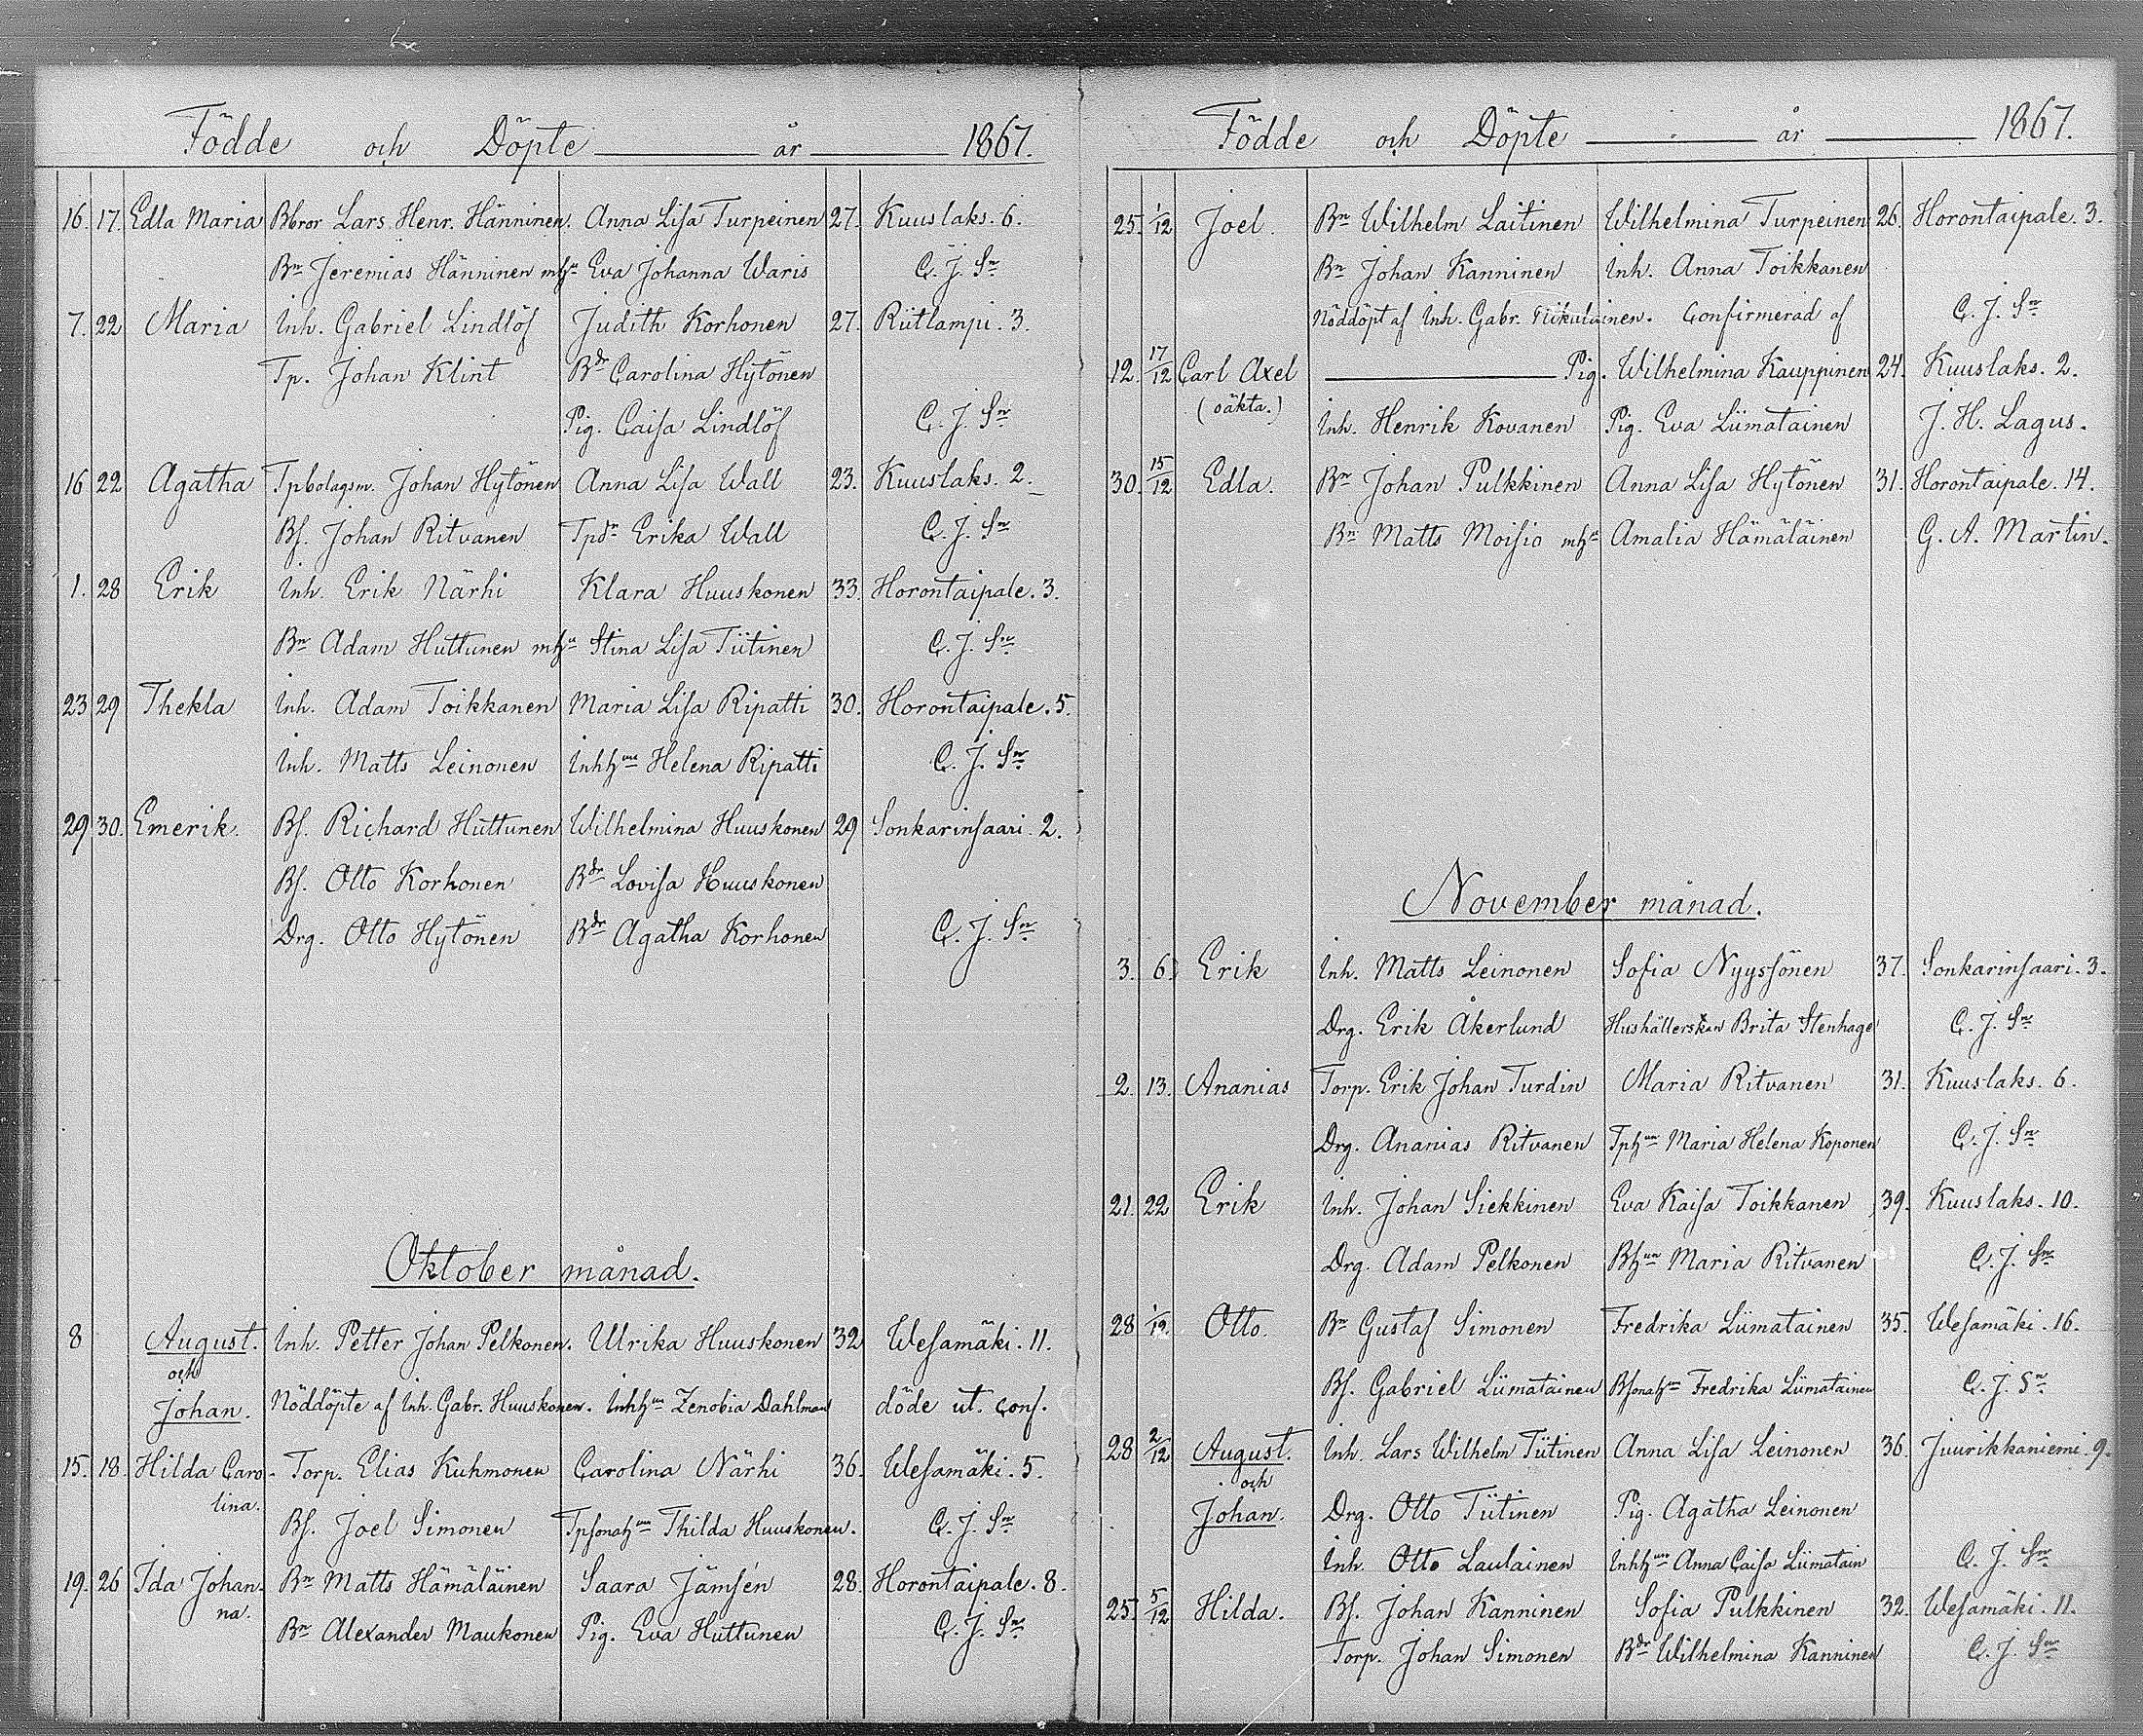 Födde och Döpte år 1867.
16. 17. Edla Maria Bbror Lars Henr. Hänninen. Anna Lisa Turpeinen 27. Kuuslaks. 6.
Bn Jeremias Hänninen mhu Eva Johanna Waris C. J. Sn
7. 22 Maria Inh. Gabriel Lindlöf Judith Korhonen 27. Riitlampi. 3.
Tp. Johan Klint Bdr Carolina Hytönen
Pig. Caisa Lindlöf C. J. Sn
16 22 Agatha Tpbolagsm. Johan Hytönen Anna Lisa Wall 23. Kuuslaks. 2.
Bs. Johan Ritvanen Tpdr Erika Wall C. J. Sn
1. 28 Erik Inh. Erik Närhi Klara Huuskonen 33. Horontaipale. 3.
Bn Adam Huttunen mhu Stina Lisa Tiitinen C. J. Sn
23 29 Thekla Inh. Adam Toikkanen Maria Lisa Ripatti 30. Horontaipale. 5.
Inh. Matts Leinonen Inhhun Helena Ripatti C. J. Sn
29 30. Emerik. Bs. Richard Huttunen Wilhelmina Huuskonen 29 Sonkarinsaari. 2.
Bs. Otto Korhonen Bdr Lovisa Huuskonen
Drg. Otto Hytönen Bdr Agatha Korhonen C. J. Sn
Oktober månad.
8 August. Inh. Petter Johan Pelkonen. Ulrika Huuskonen 32 Wesamäki. 11.
och
Johan. Nöddöpte af Inh. Gabr. Huuskonen. Inhhun Zenobia Dahlman döde ut. conf.
15. 18. Hilda Caro- Torp. Elias Kuhmonen Carolina Närhi 36. Wesamäki. 5.
lina.
Bs. Joel Simonen Tpsonahun Thilda Huuskonen. C. J. Sn
19. 26 Ida Johan- Bn Matts Hämäläinen Saara Jämsén 28. Horontaipale. 8.
na.
Bn Alexander Maukonen Pig. Eva Huttunen C. J. Sn
Födde och Döpte år 1867.
25. 1/12 Joel. Bn Wilhelm Laitinen Wilhelmina Turpeinen 26. Horontaipale. 3.
Bn Johan Kanninen Inh. Anna Toikkanen
Nöddöpt af Inh. Gabr. Tiikulainen. Confirmerad af C. J. Sn
12. 17/12 Carl Axel Pig. Wilhelmina Kauppinen 24. Kuuslaks. 2.
(oäkta.) Inh. Henrik Kovanen Pig. Eva Liimatainen J. H. Lagus.
30. 15/12 Edla. Bn Johan Pulkkinen Anna Lisa Hytönen 31. Horontaipale. 14.
Bn Matts Moisio mhu Amalia Hämäläinen G. A. Martin.
November månad.
3. 6. Erik Inh. Matts Leinonen Sofia Nyyssönen 37. Sonkarinsaari. 3.
Drg. Erik Åkerlund Hushållerskan Brita Stenhage C. J. Sn
2. 13. Ananias Torp. Erik Johan Turdin Maria Ritvanen 31. Kuuslaks. 6.
Drg. Ananias Ritvanen Tphun Maria Helena Koponen C. J. Sn
21. 22 Erik Inh. Johan Siekkinen Eva Kaisa Toikkanen 39. Kuuslaks. 10.
Drg. Adam Pelkonen Bhun Maria Ritvanen C. J. Sn
28 1/12 Otto. Bn Gustaf Simonen Fredrika Liimatainen 35. Wesamäki. 16.
Bs. Gabriel Liimatainen Bsonahun Fredrika Liimatainen C. J. Sn
28 2/12 August. Inh. Lars Wilhelm Tiitinen Anna Lisa Leinonen 36. Juurikkaniemi. 9.
och
Johan. Drg. Otto Tiitinen Pig. Agatha Leinonen
Inh. Otto Laulainen Inhhun Anna Caisa Liimatain C. J. Sn
25. 5/12 Hilda. Bs. Johan Kanninen Sofia Pulkkinen 32. Wesamäki. 11.
Torp. Johan Simonen Bdr Wilhelmina Kanninen C. J. Sn